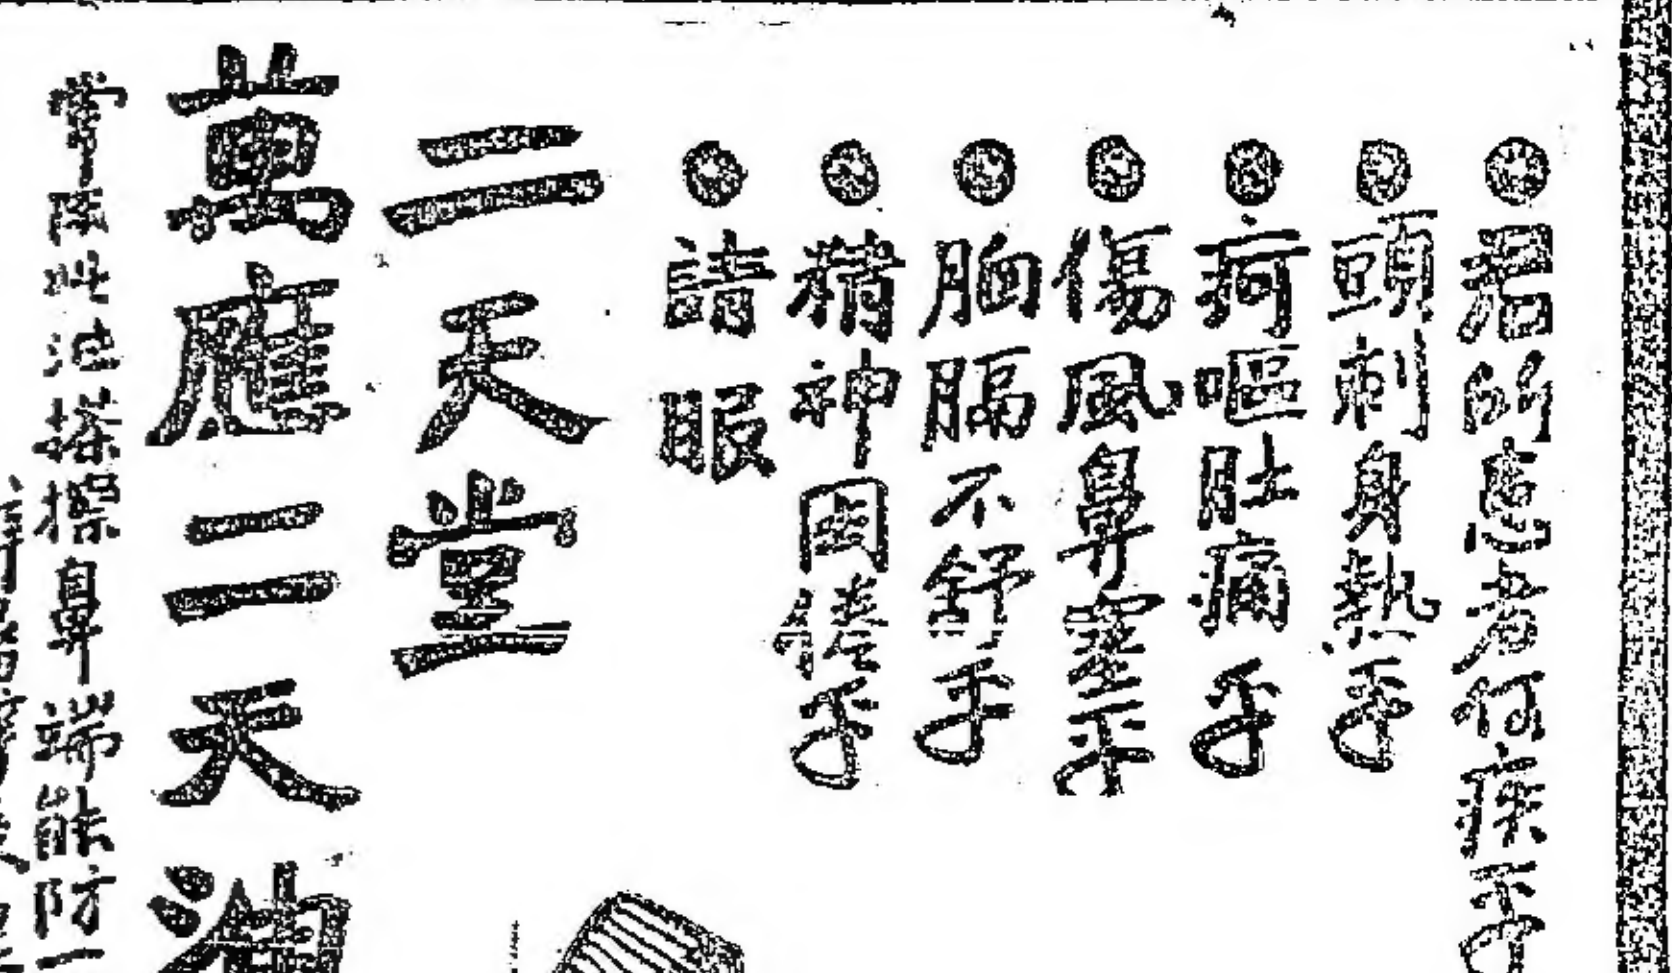 ◉君所患者何疾乎
◉頭刺身熱乎
◉疴嘔肚痛乎
◉傷風鼻塞乎
◉胸膈不舒乎
◉精神困倦乎
◉請眼
二天堂
萬應二天油
搽擦鼻端能防一